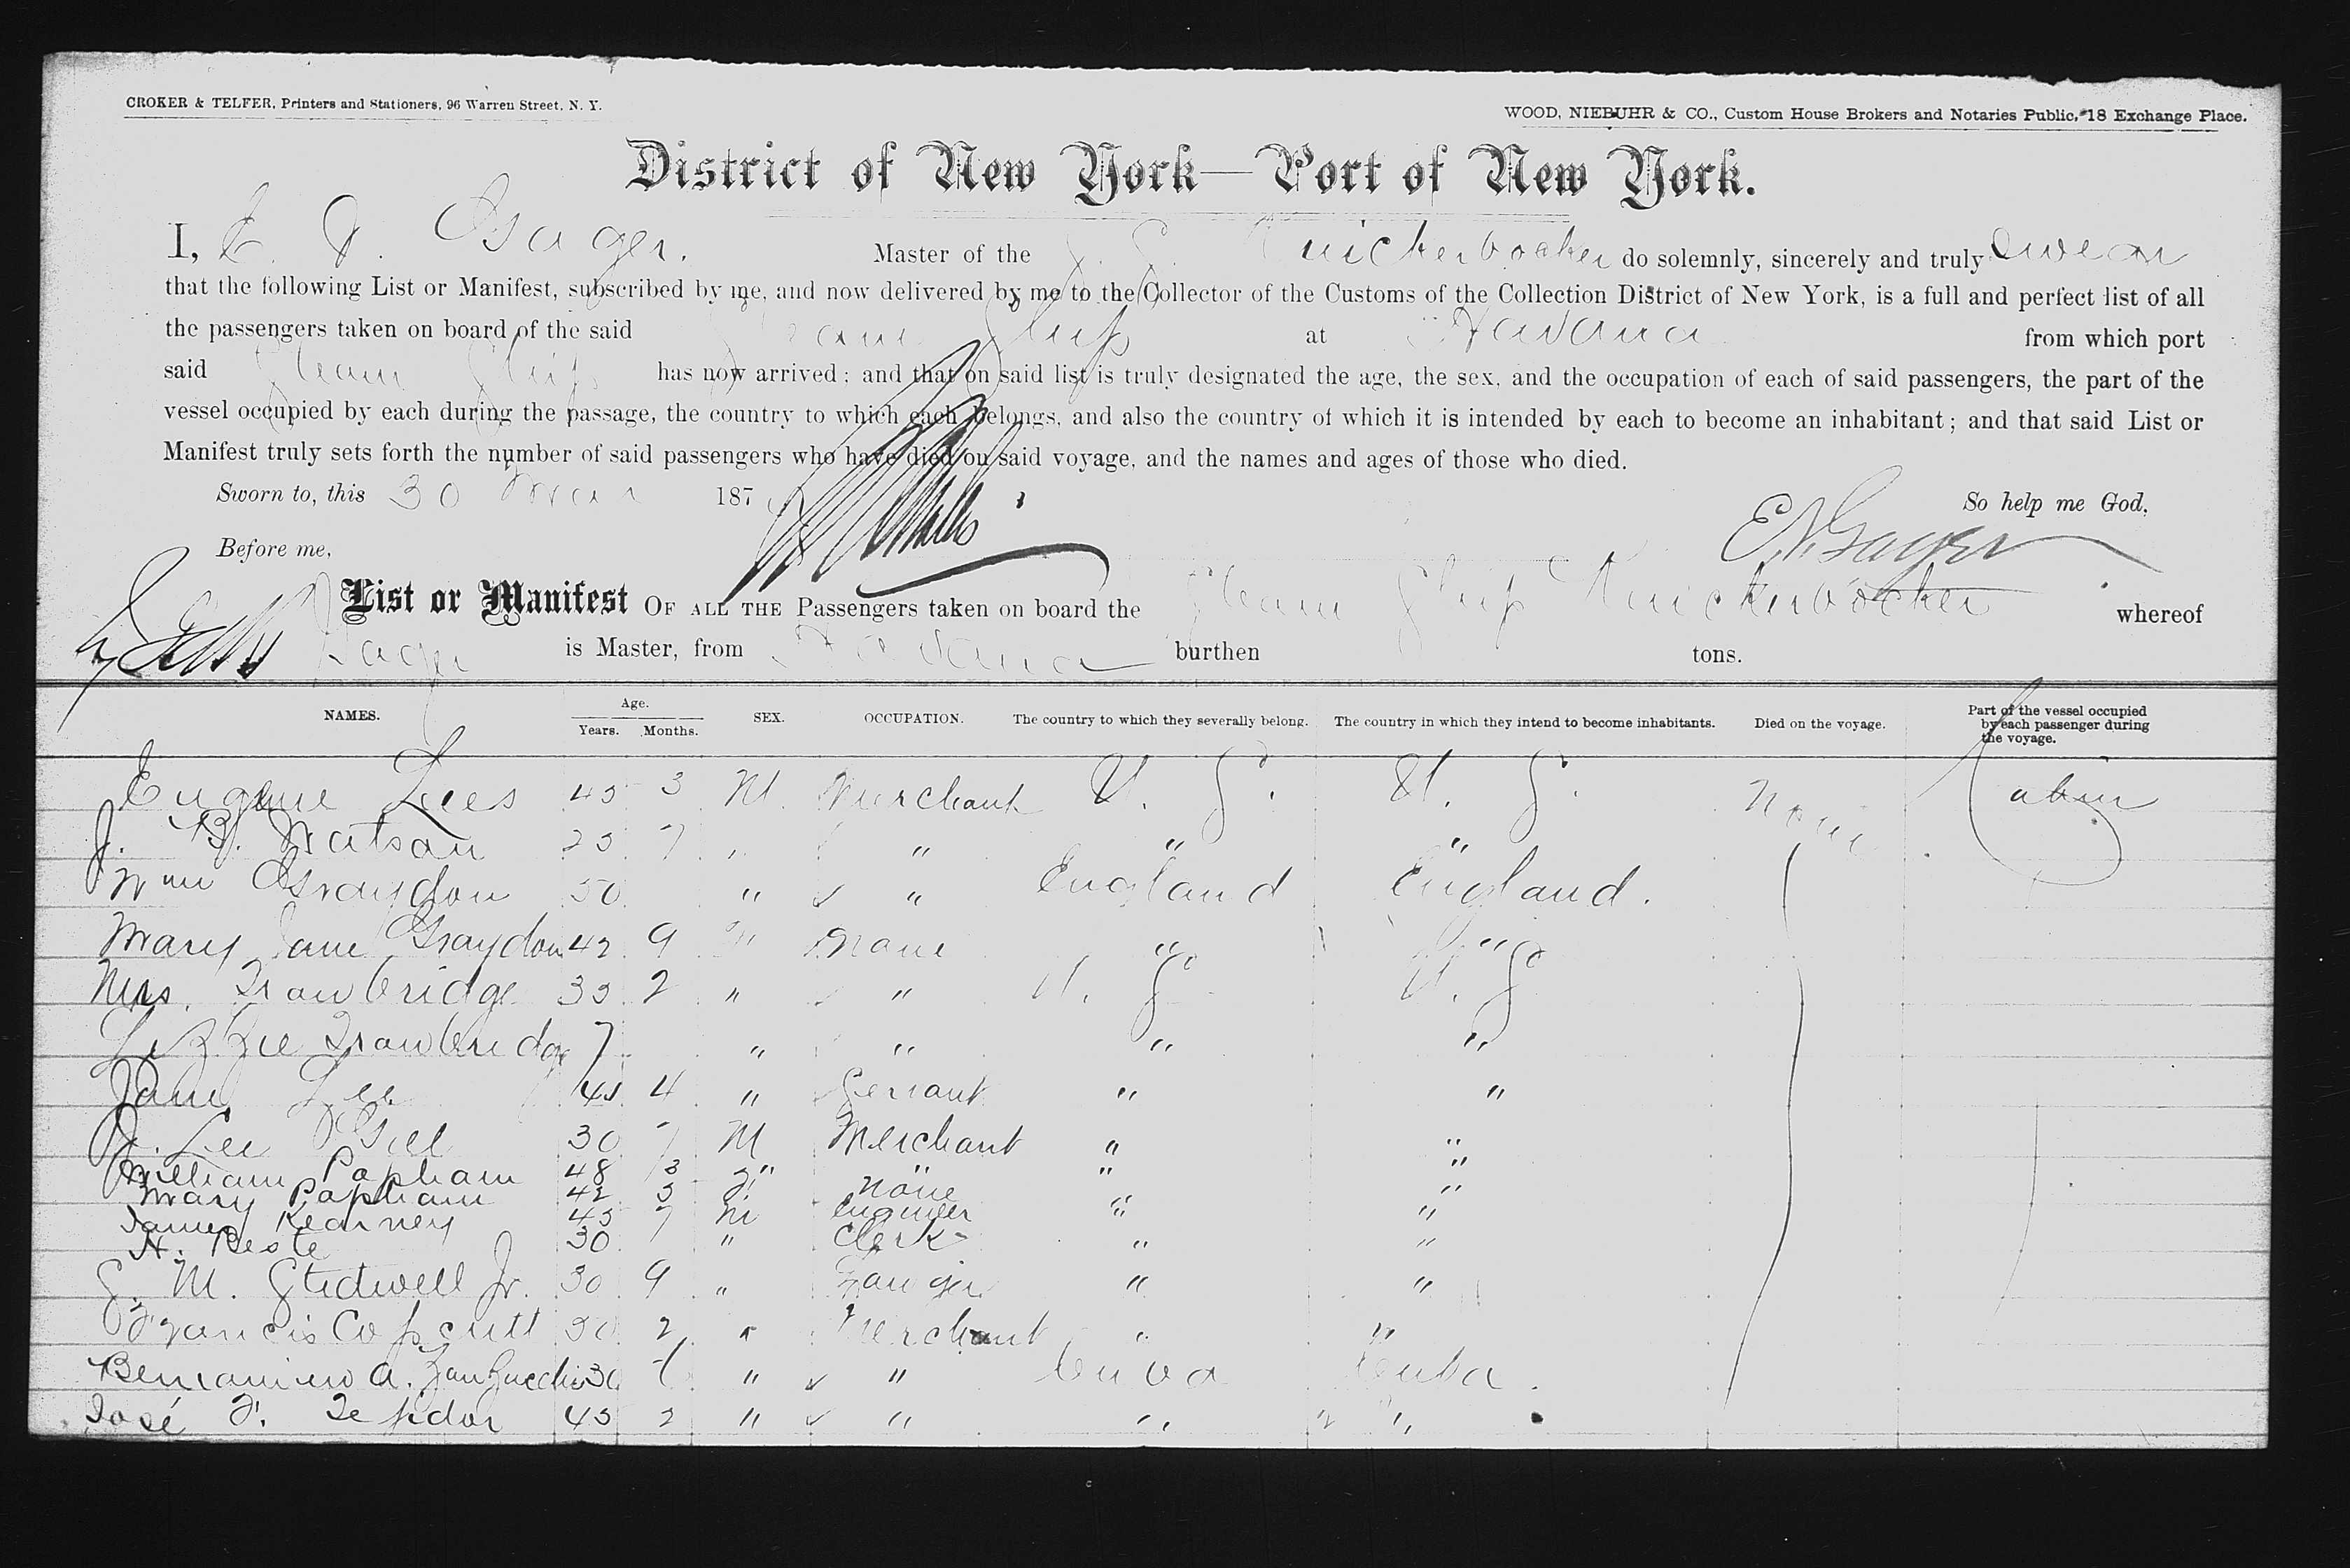 CROKER & TELFER, Printers and Stationers, 96 Warren Street, N. Y.
WOOD, NIEBUHR & CO., Custom House Brokers and Notaries Public, 18 Exchange Place.
District of New York—Port of New York.
I, Master of the S. S. Knickerbocker do solemnly, sincerely and truly swear
that the following List or Manifest, subscribed by me, and now delivered by me to the Collector of the Customs of the Collection District of New York, is a full and perfect list of all
the passengers taken on board of the said Steam Ship at Havana from which port
said Steam Ship has now arrived; and that on said list is truly designated the age, the sex, and the occupation of each of said passengers, the part of the
vessel occupied by each during the passage, the country to which each belongs, and also the country of which it is intended by each to become an inhabitant; and that said List or
Manifest truly sets forth the number of said passengers who have died on said voyage, and the names and ages of those who died.
Sworn to, this 30 Mar 187 So help me God,
Before me,
List or Manifest OF ALL THE Passengers taken on board the Steam Ship Knickerbocker whereof
is Master, from Havana burthen tons.
NAMES. Age. Years. Months. SEX. OCCUPATION. The country to which they severally belong. The country in which they intend to become inhabitants. Died on the voyage. Part of the vessel occupied by each passenger during the voyage.
Eugene Lees 45 3 M. Merchant U. S. U. S. None Cabin
J. B. Watson 7 " " " "
Wm Graydon 50 " " England England.
Mary Jane Graydon 42 9 None " "
Mrs. Trowbridge 35 2 " " U. S. U. S.
Lizzie Trowbridge 7 " " " "
Jane Lee 4 " Servant " "
J. Lee 30 7 M Merchant " "
William Popham 48 3 " " " "
Mary Popham 42 3 F None " "
James Kearney 45 7 M Engineer " "
H. Beste 30 " Clerk " "
S. M. Stedwell Jr. 30 9 " " "
Francis 30 2 " Merchant " "
A. 30 " " Cuba Cuba.
José F. 45 2 " " " "